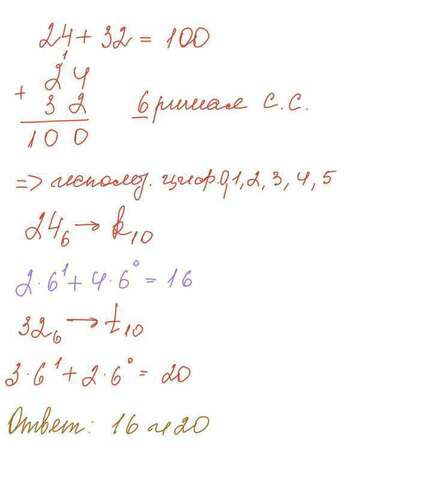 24 + 32 = 100
1
24
+
32
100
6 ричная С.С.
=> использ. цифр 0,1,2,3,4,5
24₆ → k₁₀
2·6¹ + 4·6⁰ = 16
32₆ → t₁₀
3·6¹ + 2·6⁰ = 20
Ответ: 16 и 20